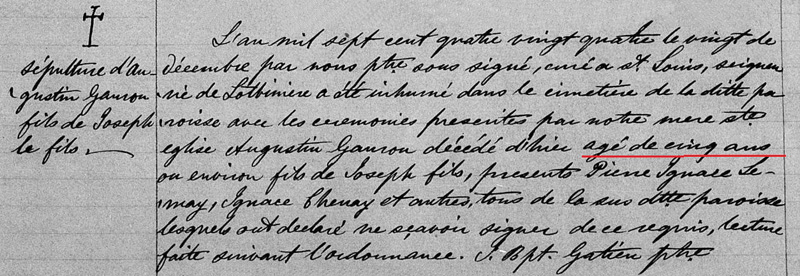 sépulture d'Au-
gustin Gauron
fils de Joseph
le fils.
L'an mil sept cent quatre vingt quatre le vingt de
décembre par nous ptre sous signé, curé à St Louis, seigneu
rie de Lotbinière a été inhumé dans le cimetière de la ditte pa
roisse avec les ceremonies presentes par notre mere ste
eglise Augustin Gauron décédé d'hier agé de cinq ans
ou environ fils de Joseph fils, presents Pierre Ignace Le-
may, Ignace Chenay et autres, tous de la sus ditte paroisse
lesquels ont declaré ne sçavoir signer de ce requis, lecture
faite suivant l'ordonnance. J. Bpt. Gatien ptre